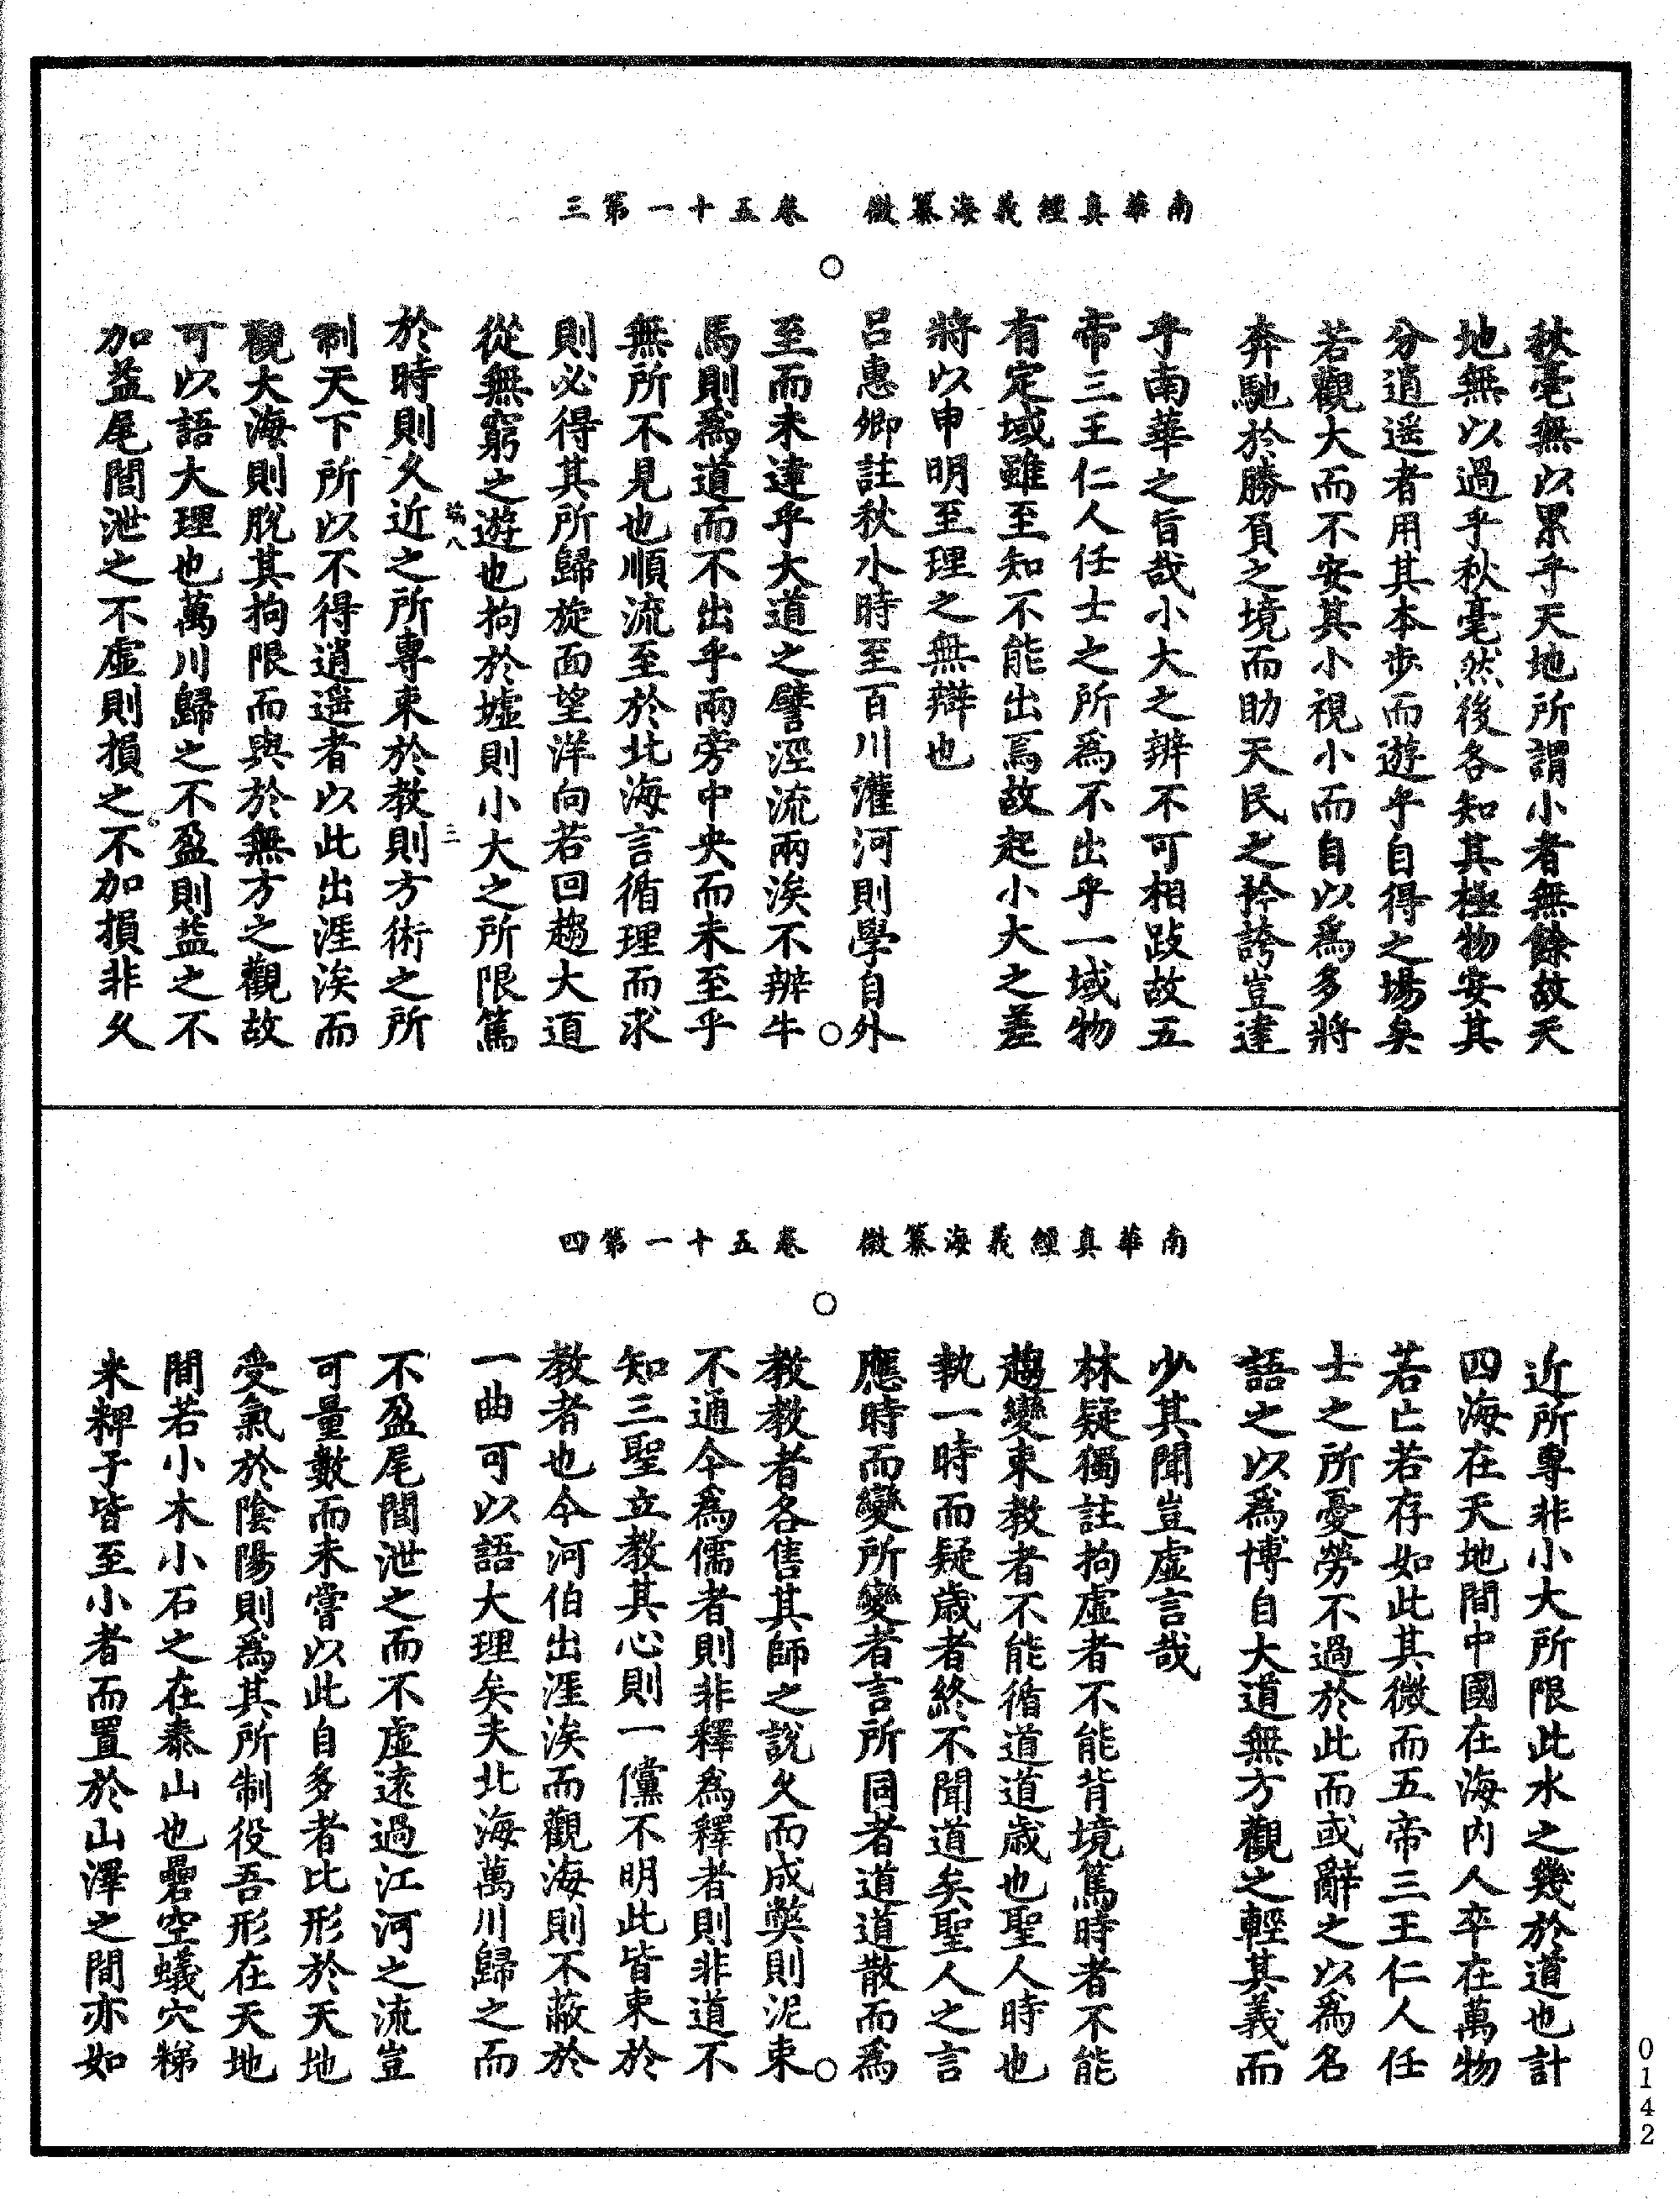 南華真經義海纂微　卷五十一第三
秋毫無以累乎天地所謂小者無餘故天
地無以過乎秋毫然後各知其極物安其
分逍遥者用其本步而遊乎自得之場矣
若觀大而不安其小視小而自以爲多將
奔馳於勝負之境而助天民之矜誇豈達
乎南華之旨哉小大之辨不可相跂故五
帝三王仁人任士之所爲不出乎一域物
有定域雖至知不能出焉故起小大之差
將以申明至理之無辯也
呂惠卿註秋水時至百川灌河則學自外
至而未達乎大道之譬涇流兩涘不辨牛
馬則爲道而不出乎兩旁中央而未至乎
無所不見也順流至於北海言循理而求
則必得其所歸旋面望洋向若回趨大道
從無窮之遊也拘於墟則小大之所限篤
於時則久近之所專束於教則方術之所
制天下所以不得逍遥者以此出涯涘而
觀大海則脫其拘限而與於無方之觀故
可以語大理也萬川歸之不盈則益之不
加益尾閭泄之不虛則損之不加損非久
南華真經義海纂微　卷五十一第四
近所專非小大所限此水之幾於道也計
四海在天地間中國在海內人卒在萬物
若亡若存如此其微而五帝三王仁人任
士之所憂勞不過於此而或辭之以爲名
語之以爲博自大道無方觀之輕其義而
少其聞豈虛言哉
林疑獨註拘虛者不能背境篤時者不能
趨變束教者不能循道道歲也聖人時也
執一時而疑歲者終不聞道矣聖人之言
應時而變所變者言所同者道道散而爲
教教者各售其師之說久而成弊則泥束
不通今爲儒者則非釋爲釋者則非道不
知三聖立教其心則一儻不明此皆束於
教者也今河伯出涯涘而觀海則不蔽於
一曲可以語大理矣夫北海萬川歸之而
不盈尾閭泄之而不虛遠過江河之流豈
可量數而未嘗以此自多者比形於天地
受氣於陰陽則爲其所制役吾形在天地
間若小木小石之在泰山也礨空蟻穴稊
米稗子皆至小者而置於山澤之間亦如
0142